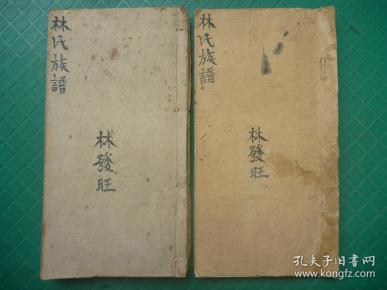 林氏族譜
林發旺
林氏族譜
林發旺
孔夫子旧书网